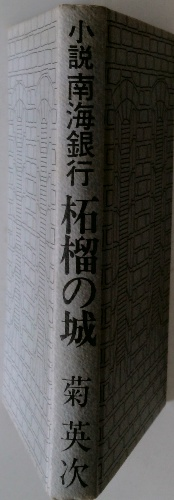 小説 南海銀行 柘榴の城 菊英次